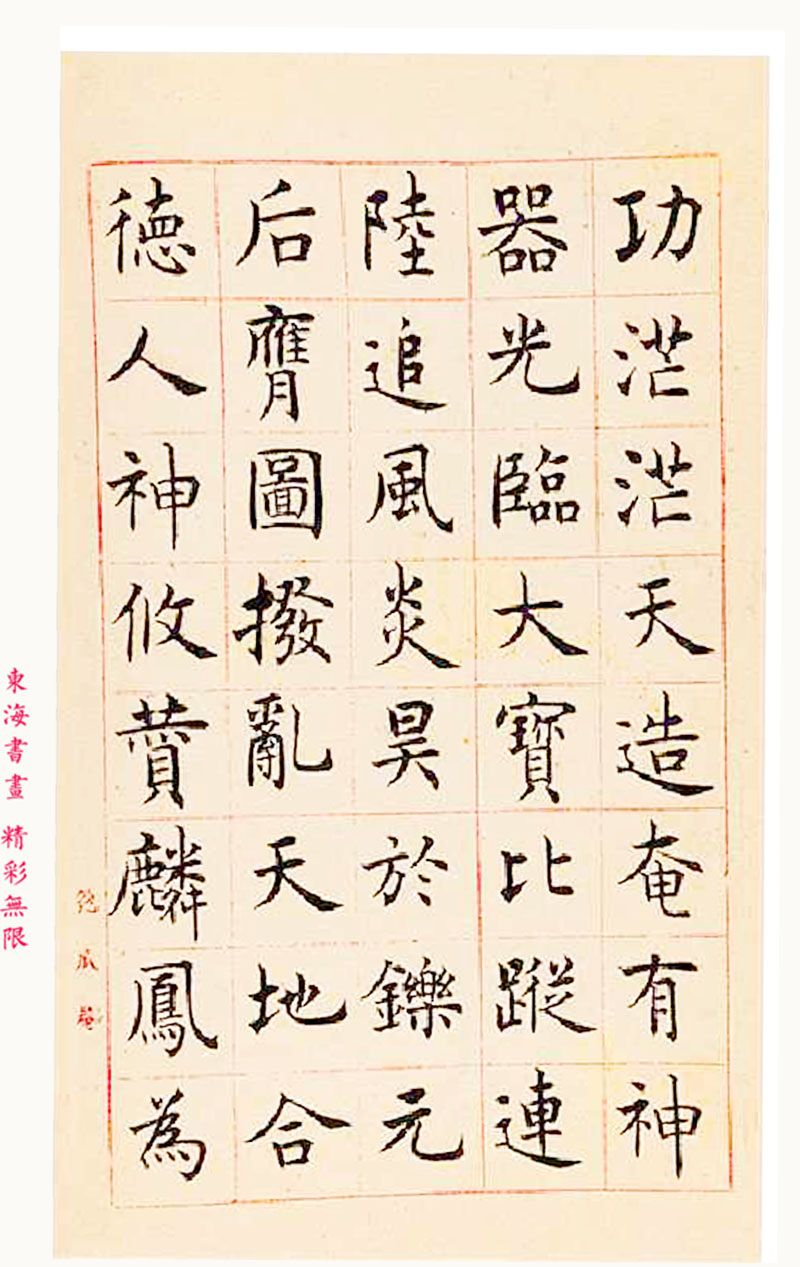 功茫茫天造奄有神
器光臨大寶比蹤連
陸追風炎昊於鑠元
后膺圖撥亂天地合
德人神攸賛麟鳳為
匏瓜庵
東海書畫 精彩無限